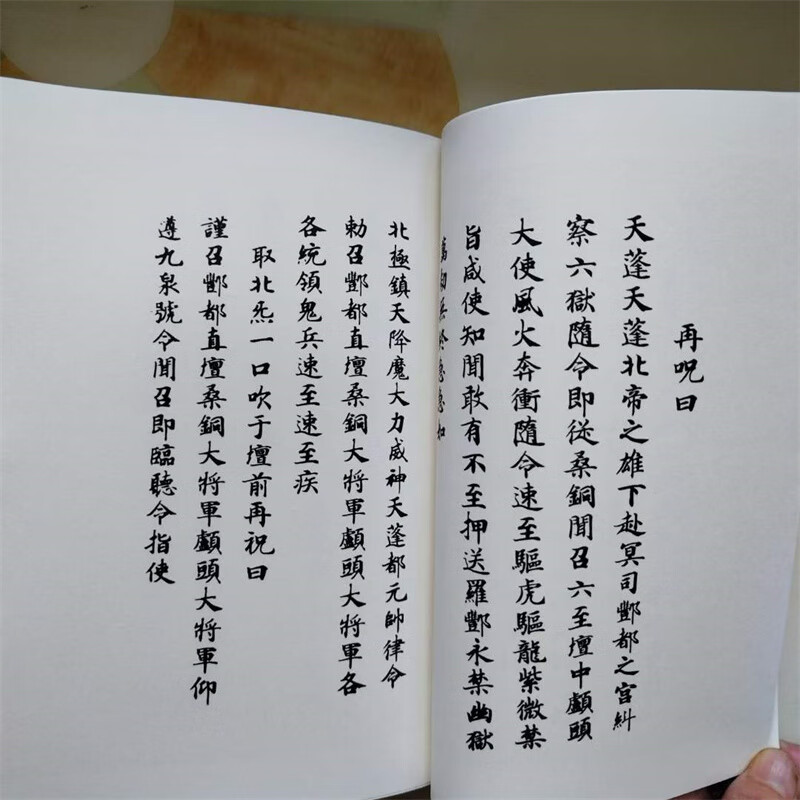 再呪曰
天蓬天蓬北帝之雄下赴冥司酆都之宮糾
察六獄隨令即從桑銅聞召六至壇中顱頭
大使風火奔衝隨令速至驅虎驅龍紫微禁
旨咸使知聞敢有不至押送羅酆永禁幽獄
萬劫
北極鎮天降魔大力威神天蓬都元帥律令
勅召酆都直壇桑銅大將軍顱頭大將軍各
各統領鬼兵速至速至疾
取北炁一口吹于壇前再祝曰
謹召酆都直壇桑銅大將軍顱頭大將軍仰
遵九泉號令聞召即臨聽令指使